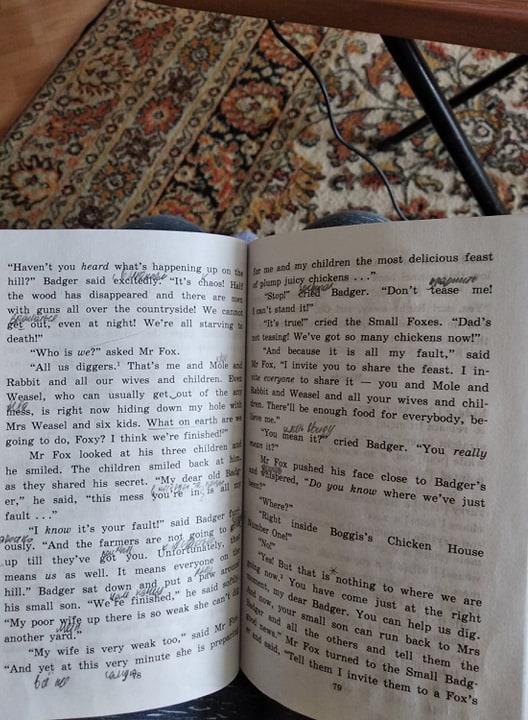 "Haven't you heard what's happening up on the
hill?" Badger said excitedly. "It's chaos! Half
the wood has disappeared and there are men
with guns all over the countryside! We cannot
get out, even at night! We're all starving to
death!"
"Who is we?" asked Mr Fox.
"All us diggers.¹ That's me and Mole and
Rabbit and all our wives and children. Even
Weasel, who can usually get out of any
mess, is right now hiding down my hole with
Mrs Weasel and six kids. What on earth are we
going to do, Foxy? I think we're finished!"
Mr Fox looked at his three children and
he smiled. The children smiled back at him,
as they shared his secret. "My dear old Badg-
er," he said, "this mess you're in is all my
fault . . ."
"I know it's your fault!" said Badger furi-
ously. "And the farmers are not going to give
up till they've got you. Unfortunately, that
means us as well. It means everyone on the
hill." Badger sat down and put a paw around
his small son. "We're finished," he said softly.
"My poor wife up there is so weak she can't dig
another yard."
"My wife is very weak too," said Mr Fox.
"And yet at this very minute she is preparing
78
for me and my children the most delicious feast
of plump juicy chickens . . ."
"Stop!" cried Badger. "Don't tease me!
I can't stand it!"
"It's true!" cried the Small Foxes. "Dad's
not teasing! We've got so many chickens now!"
"And because it is all my fault," said
Mr Fox, "I invite you to share the feast. I in-
vite everyone to share it — you and Mole and
Rabbit and Weasel and all your wives and chil-
dren. There'll be enough food for everybody, be-
lieve me."
"You mean it?" cried Badger. "You really
mean it?"
Mr Fox pushed his face close to Badger's
and whispered, "Do you know where we've just
been?"
"Where?"
"Right inside Boggis's Chicken House
Number One!"
"No!"
"Yes! But that is nothing to where we are
going now. You have come just at the right
moment, my dear Badger. You can help us dig.
And now, your small son can run back to Mrs
Badger and all the others and tell them the
good news." Mr Fox turned to the Small Badg-
er and said, "Tell them I invite them to a Fox's
79